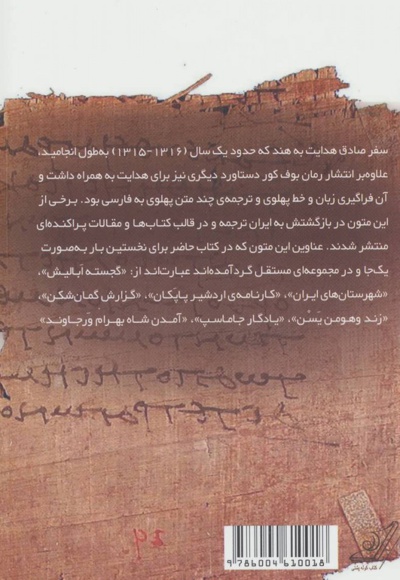 سفر صادق هدایت به هند که حدود یک سال (۱۳۱۶-۱۳۱۵) به‌طول انجامید،
علاوه‌بر انتشار رمان بوف کور دستاورد دیگری نیز برای هدایت به همراه داشت و
آن فراگیری زبان و خط پهلوی و ترجمه‌ی چند متن پهلوی به فارسی بود. برخی از
این متون در بازگشتش به ایران ترجمه و در قالب کتاب‌ها و مقالات پراکنده‌ای
منتشر شدند. عناوین این متون که در کتاب حاضر برای نخستین بار به‌صورت
یک‌جا و در مجموعه‌ای مستقل گردآمده‌اند عبارت‌اند از: «گجسته اَبالیش»،
«شهرستان‌های ایران»، «کارنامه‌ی اردشیر پاپکان»، «گزارش گمان‌شکن»،
«زند وهومن یَسْن»، «یادگار جاماسپ»، «آمدن شاه بهرام وَرجاوند»
9786004610018